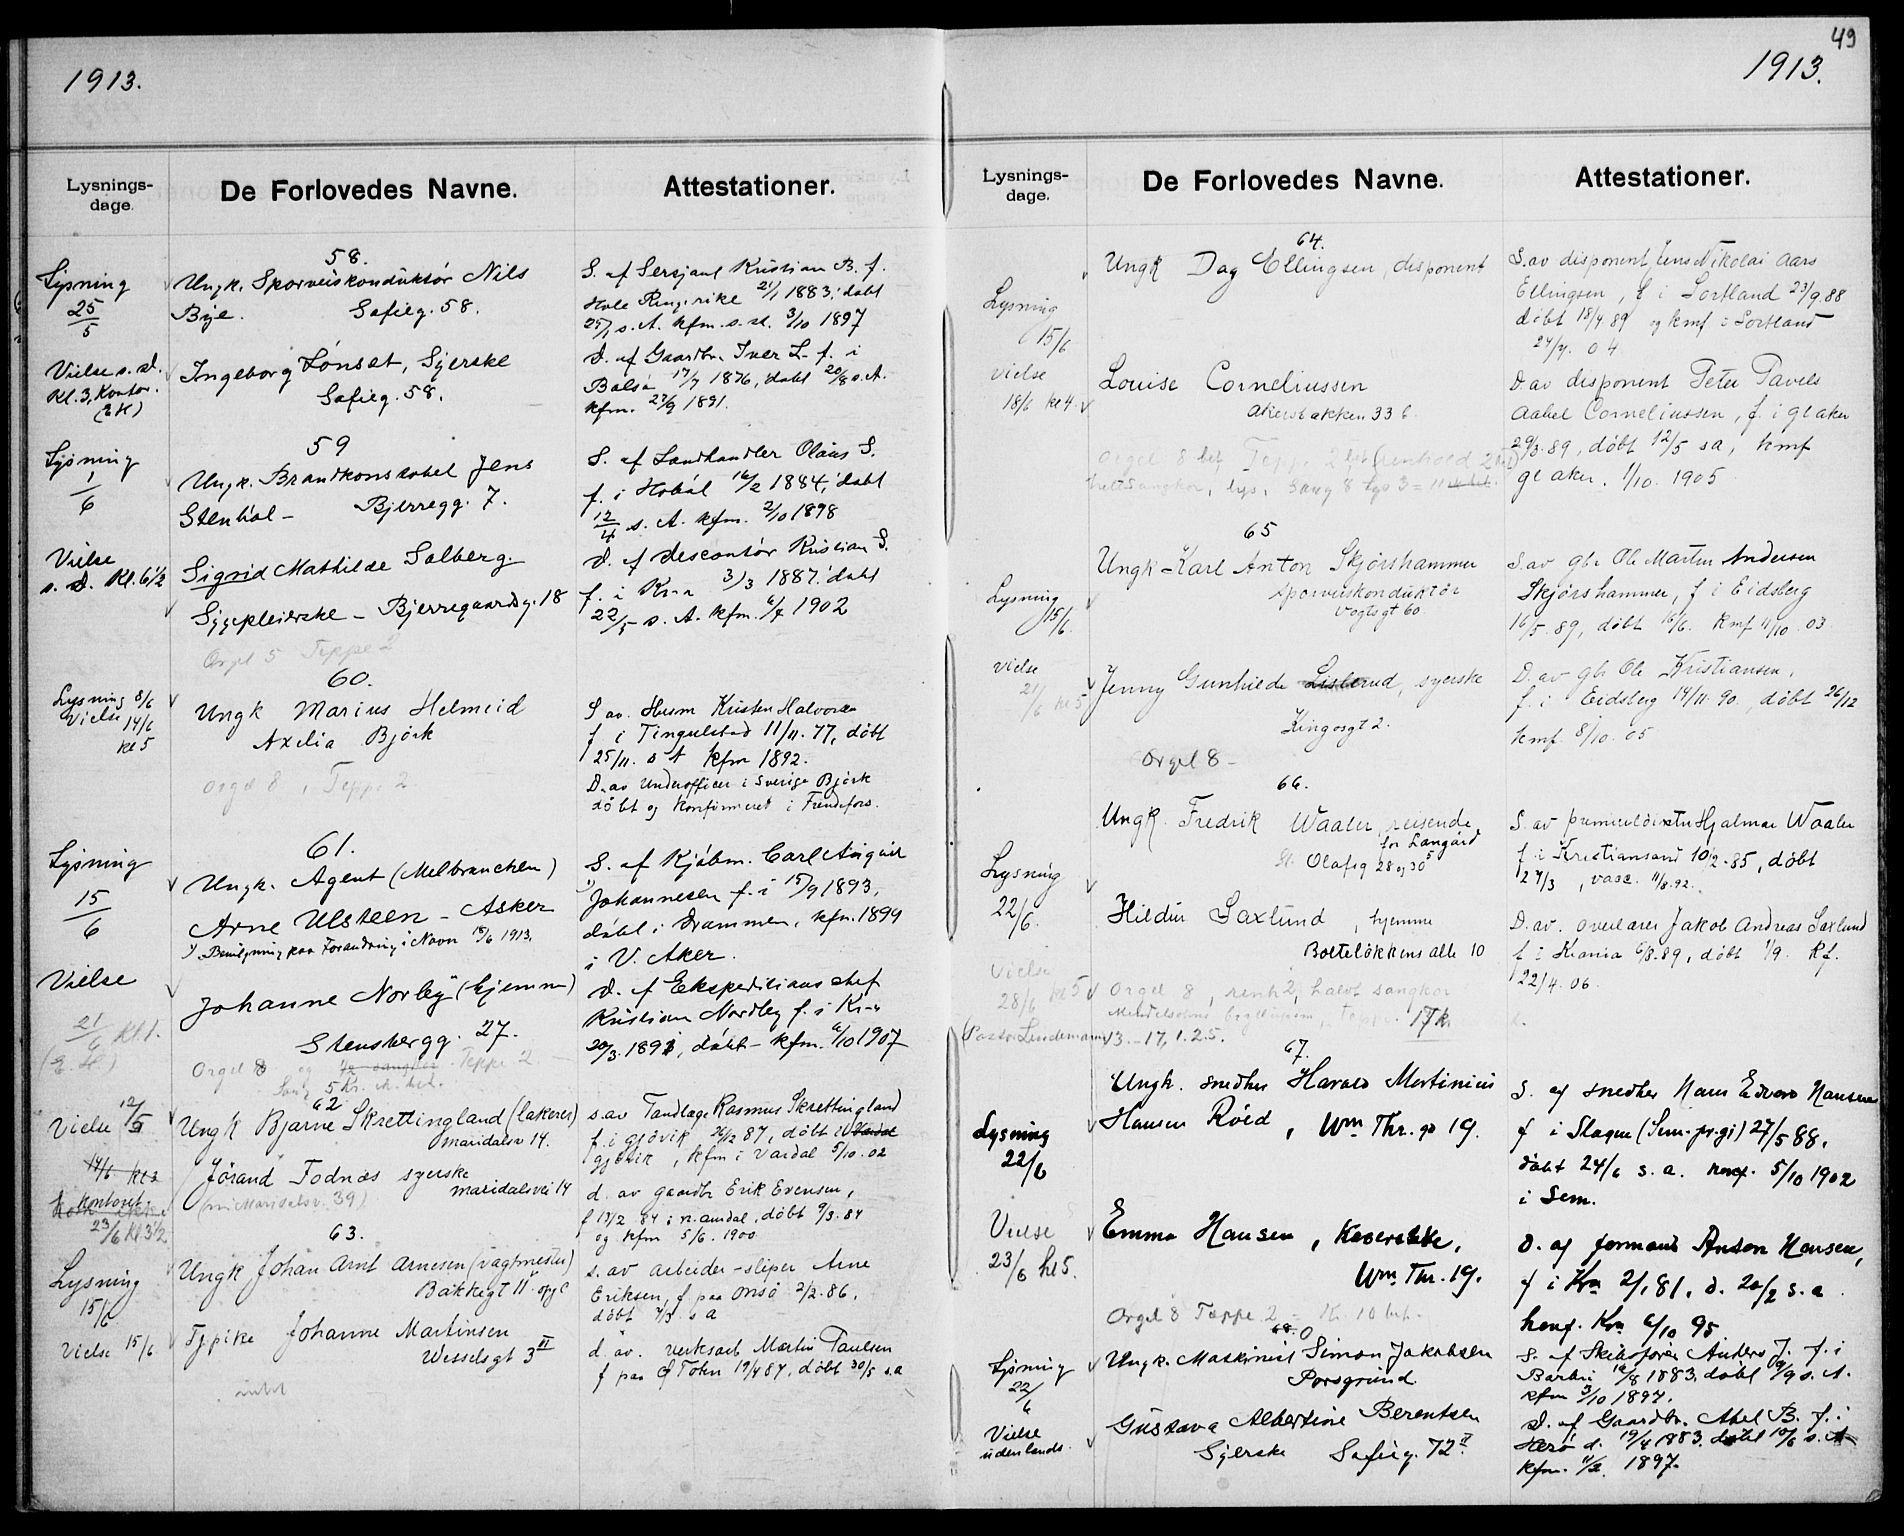 1913.
Lysnings-
dage.
De Forlovedes Navne.
Attestationer.
58.
Lysning
25/5
Ungk. Sporveiskonduktør Nils
Bye. Sofieg. 58.
S. af Sersjant Kristian B. f.
Hole Ringerike 21/1 1883, døbt
s. A. kfm. s. st. 3/10 1897
Vielse s. d.
Kl. 3, Kontor.
Ingeborg Lønset, Syerske
Sofieg. 58.
D. af Gaardbr. Iver L. f. i
17/7 1876, døbt 20/8 s. A.
kfm. 27/9 1891.
59
Lysning
1/6
Ungk. Brandkonstabel Jens
Stenhol - Bjerregg. 7.
S. af Landhandler Olaus S.
f. i Hobøl 16/2 1884, døbt
12/4 s. A. kfm. 2/10 1898
Vielse
s. d. Kl. 6 1/2
Sigrid Mathilde Solberg
Sygepleierske - Bjerregaardsg. 18
D. af Kristian S.
f. i Kr.a 3/3 1887, døbt
22/5 s. A. kfm. 1902
Orgel 5 Teppe 2
60.
Lysning 8/6
Vielse 14/6
kl 5
Ungk Marius Helmeid
Axelia Björk
S av. Husm Kristen Halvorsen
f i Tingelstad 11/11. 77, døbt
25/11. s A kfm 1892.
D. av Underofficer i Sverige Björk
döbt og konfirmeret i
Orgel 8, Teppe 2
61.
Lysning
15/6
Ungk. Agent (Melbranchen)
Arne Ulsteen - Asker
1) Bevilgning paa Forandring i Navn 1913.
S. af Kjøbm. Carl August
1) Johannesen f. i 15/9 1893,
døbt i Drammen, kfm. 1899
i V. Aker.
Vielse
21/6 Kl. 1.
Johanne Norby (hjemme)
Stensbergg. 27.
D. af Ekspeditionschef
Kristian Nordby f. i Kr.a
20/3. 1891, døbt - kfm. 6/10 1907
Orgel 8 og Teppe 2
Sang 5 Kr.
62
Vielse 12/5
14/6 kl 2
kontoret
23/6 Kl 3 1/2
Ungk Bjarne Skrettingland (lakerer)
Maridalsv 14.
s. av Tandlæge Rasmus Skrettingland
f. i gjövik, 26/2 87, döbt i Vardal
gjövik, kfm i Vardal 5/10. 02
Jörand Todnæs syerske
Maridalsvei 14
(nu Maridalsv. 39)
d. av gaardbr Erik Evensen,
f 13/2 84 i n. aurdal, döbt 9/3. 84
og kfm 5/6. 1900
63.
Lysning
15/6
Ungk Johan Arnt Arnesen (vagtmester)
Bakkegt 11 opg C
s. av arbeider - sliper Arne
Eriksen, f paa Onsö 2/2. 86,
döbt 7/3 s a
Vielse 15/6
Tj. pike Johanne Martinsen
Wesselsgt 3 II
d. av. verksarb Martin Paulsen
f paa 19/4 87, döbt 30/5 s. a
intet
49
1913.
Lysnings-
dage.
De Forlovedes Navne.
Attestationer.
64.
Lysning
15/6
Ungk Dag Ellingsen, disponent
S. av disponent Jens Nikolai Aars
Ellingsen, f i Sortland 23/9. 88
döbt 18/4 89 og kmf i Sortland
04
Vielse
18/6 kl 4.
Louise Corneliussen
Akersbakken 33 b.
D. av disponent Peter Pavels
Aabel Corneliussen, f. i gl aker
29/3. 89, döbt 12/5 sa, kmf
gl aker. 1/10. 1905
65
Lysning
15/6.
Ungk - Karl Anton Skjörshammer
Sporveiskonduktör
Vogtsgt 60.
S. av gbr Ole Martin Andersen
Skjörshammer, f i Eidsberg
16/5. 89, döbt 16/6. Kmf 11/10. 03
Vielse
21/6 kl 5
Jenny Gunhilde Listerud, syerske
Kingosgt 2.
D. av gbr Ole Kristiansen,
f. i Eidsberg 14/11. 90, döbt 26/12
kmf. 8/10. 05
Orgel 8 -
66.
Lysning
22/6.
Ungk. Fredrik Waaler, reisende
for Langård
St. Olafsg 28 og 30
S. av premierlöitn Hjalmar Waaler
f. i Kristiansand 10/2. 85, döbt
27/3, vasc. 11/8. 92.
Hildur Saxlund, hjemme
Bolteløkkens alle 10
D. av. overlærer Jakob Andreas Saxlund
f i Krania 6/8. 89, döbt 1/9. Kf.
22/4. 06.
Vielse
28/6 kl 5
(Pastor Lindemann)
Orgel 8, renh 2, halvt sangkor
Teppe.
13. - 17, 1. 2. 5.
67.
Lysning
22/6
Ungk. snedker Harald Martinius
Hansen Röed, Wm Thr. gt 19.
S. af snedker Hans Edvard Hansen
f i Slagen (Sem. pr.gj) 27/5 88,
døbt 24/6 s. a. konf. 5/10 1902
i Sem.
Vielse
23/6 kl 5.
Emma Hansen,
Wm Thr. 19.
D. af formand Anton Hansen,
f i Kra 2/1 81. d. 20/2 s. a.
konf. Kra 6/10 95
Orgel 8 Teppe 2 - Kr. 10 bet.
68.
Lysning
22/6
Ungk. Maskinist Simon Jakobsen
Porsgrund
S. af Skibsfører Anders J. f. i
Barbu 1883, døbt s. A.
kfm 3/10 1897.
Vielse
udenlands.
Gustava Albertine Berentsen
Syerske Sofieg. 72 II.
D. af Gaardbr. Abel B. f. i
Herø d. 19/4 1883, døbt 10/6 s. A
kfm. 1897.